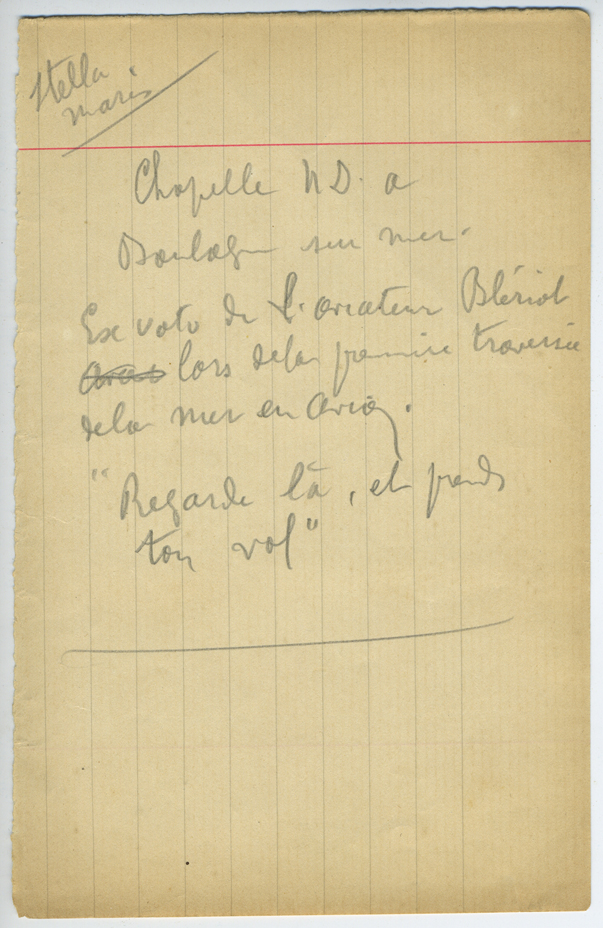 Stella
maris
Chapelle N D. a
Boulogne sur mer.
Ex voto de l'aviateur Blériot
lors de la premiere traversée
de la mer en avion.
"Regarde là, et prends
ton vol"